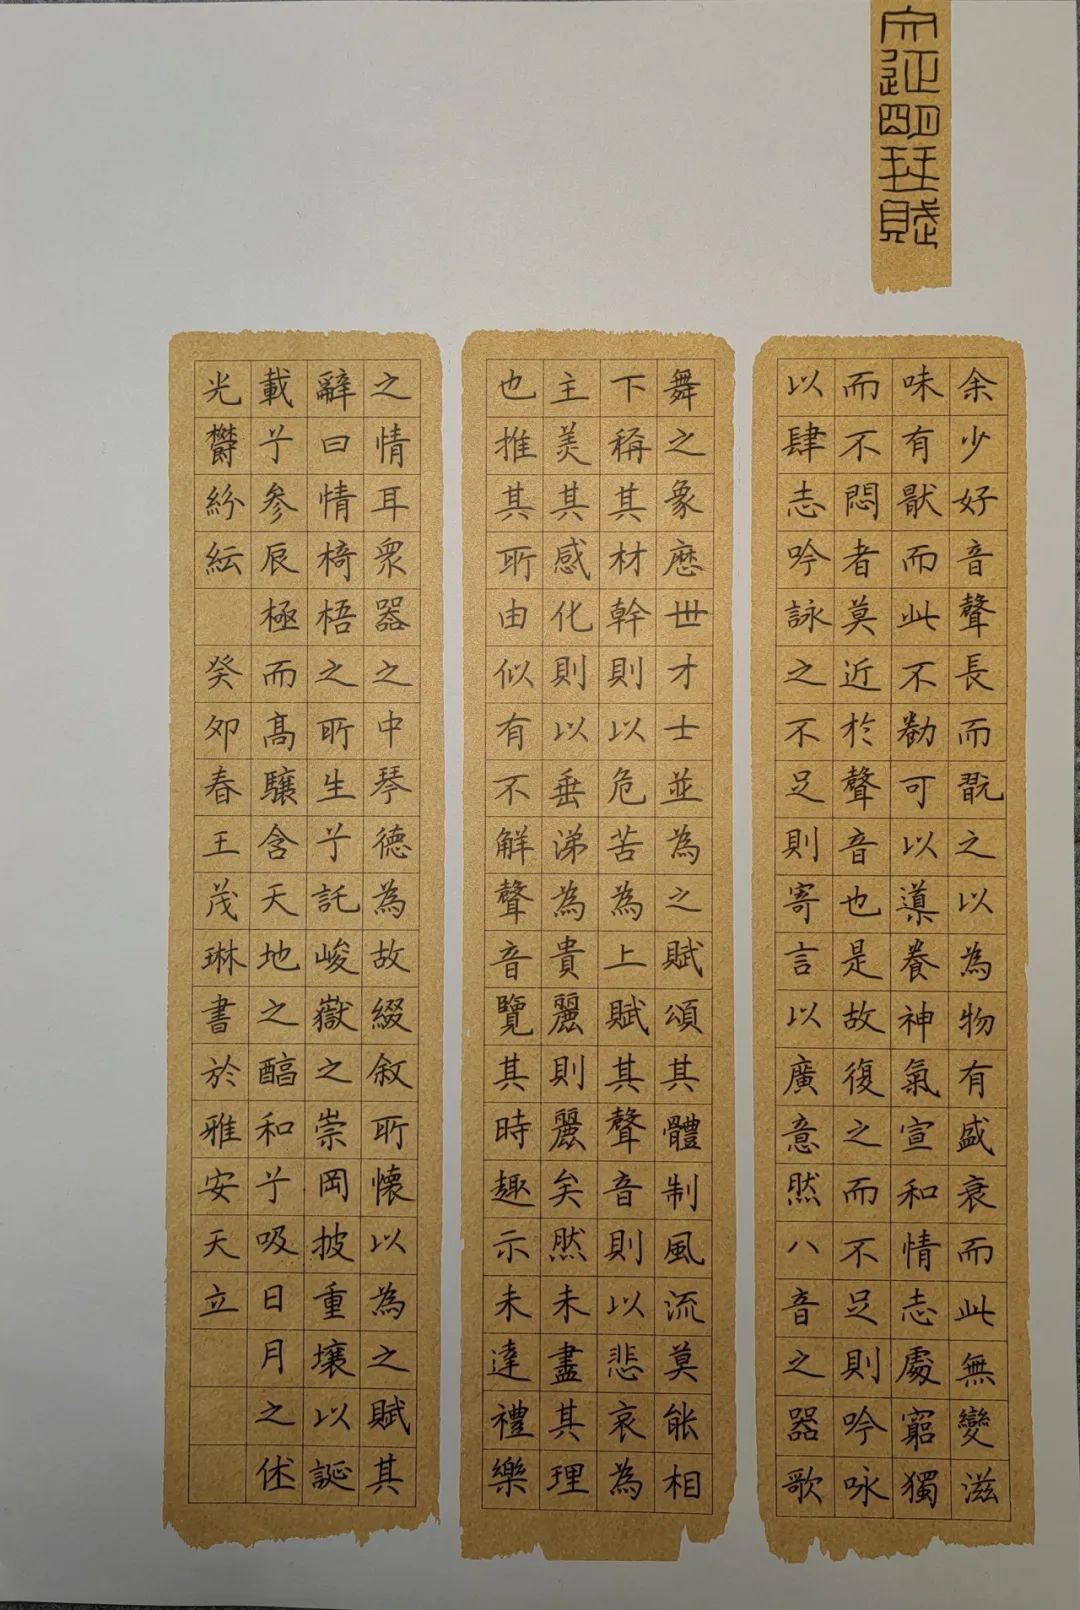 文征明琴賦
余少好音聲長而翫之以為物有盛衰而此無變滋
味有猒而此不勌可以導養神氣宣和情志處窮獨
而不悶者莫近於聲音也是故復之而不足則吟咏
以肆志吟詠之不足則寄言以廣意然八音之器歌
舞之象歷世才士並為之賦頌其體制風流莫能相
下稱其材幹則以危苦為上賦其聲音則以悲哀為
主美其感化則以垂涕為貴麗則麗矣然未盡其理
也推其所由似有不解聲音覽其時趣示未達禮樂
之情耳眾器之中琴德為故綴敘所懷以為之賦其
辭曰情椅梧之所生兮託峻嶽之崇岡披重壤以誕
載兮參辰極而高驤含天地之醕和兮吸日月之休
光鬱紛紜 癸卯春王茂琳書於雅安天立